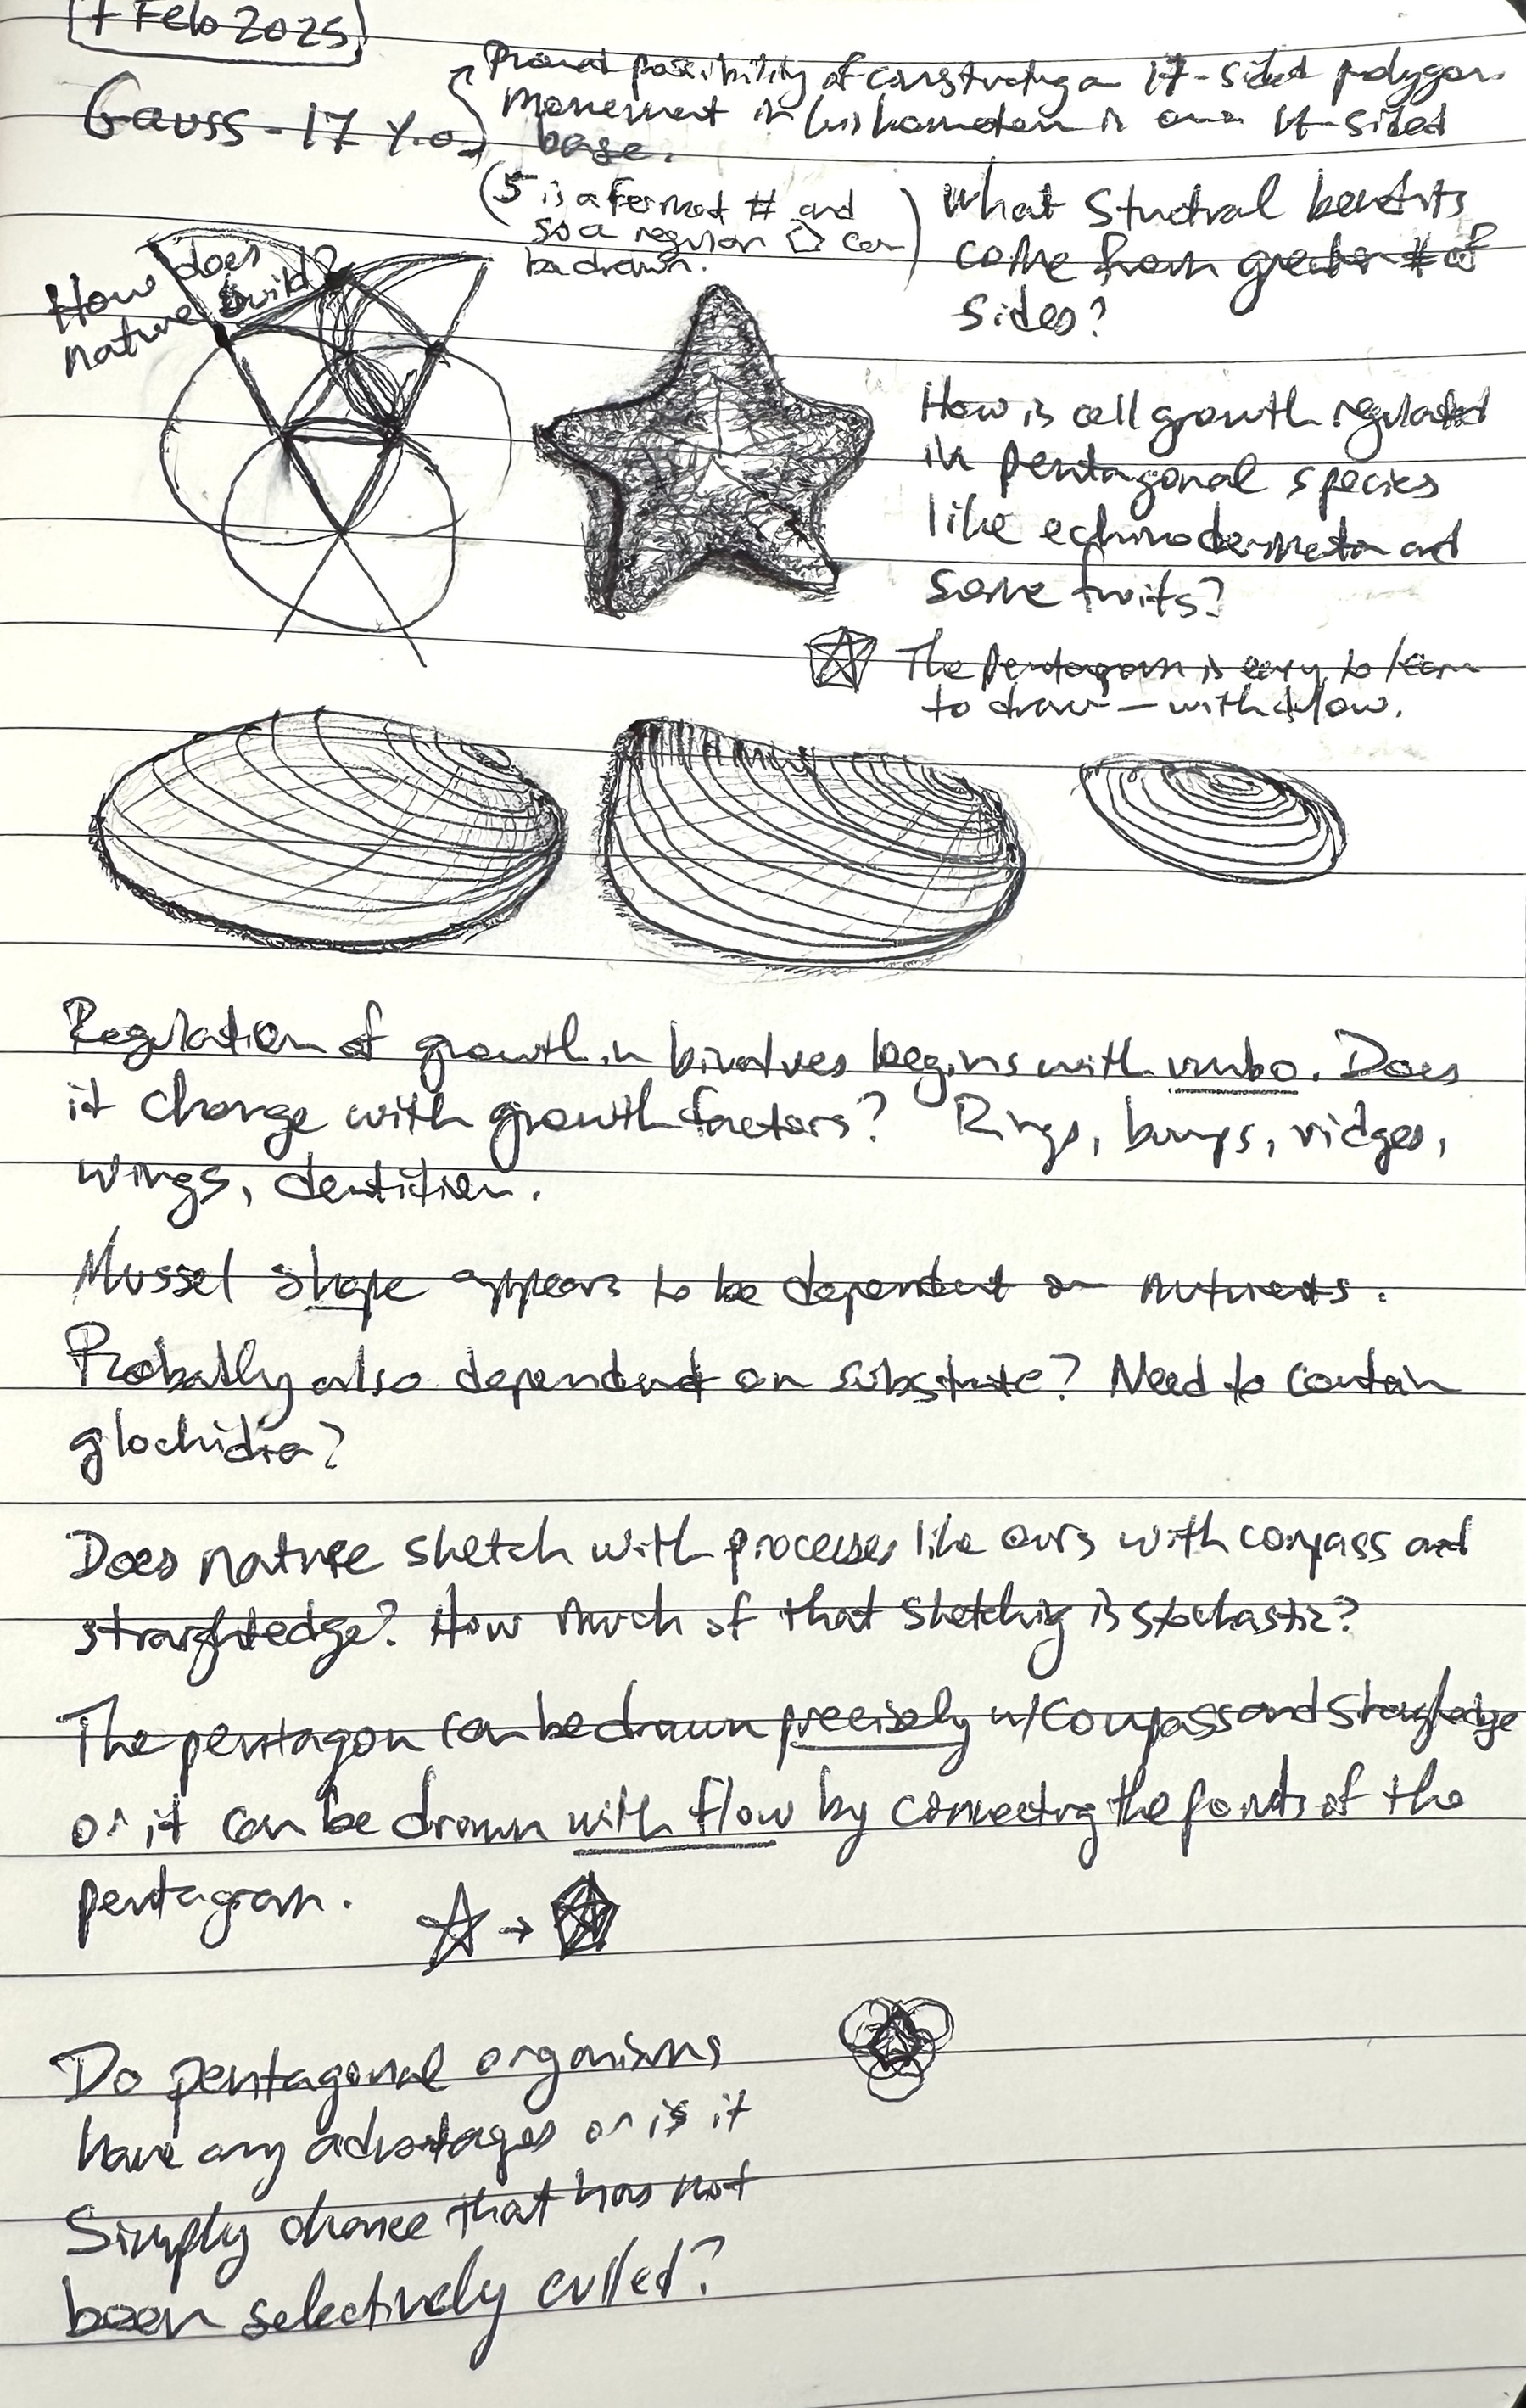 7 Feb 2025
Gauss - 17 y.o.
Proved possibility of constructing a 17-sided polygon.
Monument in his hometown is on a 17-sided
base.
(5 is a Fermat # and
so a regular ⬠ can
be drawn.)
What structural benefits
come from greater # of
sides?
How does
nature build?
How is cell growth regulated
in pentagonal species
like echinodermata and
some fruits?
The pentagram is easy to learn
to draw — with flow.
Regulation of growth in bivalves begins with umbo. Does
it change with growth factors? Rings, bumps, ridges,
wings, dentition.
Mussel shape appears to be dependent on nutrients.
Probably also dependent on substrate? Need to contain
glochidia?
Does nature sketch with processes like ours with compass and
straightedge? How much of that sketching is stochastic?
The pentagon can be drawn precisely w/compass and straightedge
or it can be drawn with flow by connecting the points of the
pentagram. → 
Do pentagonal organisms
have any advantages or is it
simply chance that has not
been selectively culled?